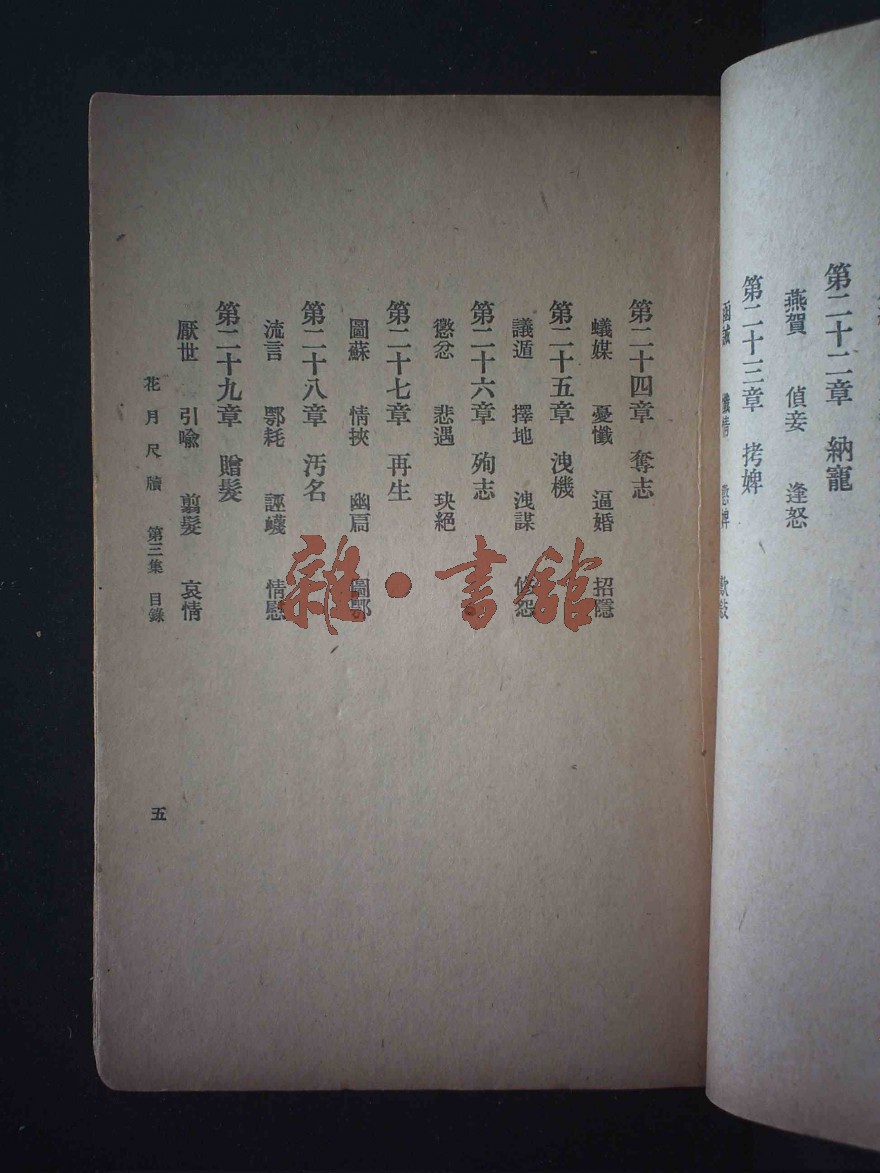 第二十二章 納寵
燕賀 偵妾 逢怒
第二十三章 拷婢
第二十四章 奪志
蟻媒 憂懺 逼婚 招隱
第二十五章 洩機
議遁 擇地 洩謀 修怨
第二十六章 殉志
懲忿 悲遇 玦絕
第二十七章 再生
圖蘇 情挾 幽扃 圖鄂
第二十八章 汚名
流言 鄂耗 誣衊 情慰
第二十九章 贈髮
厭世 引喩 翦髮 哀情
花月尺牘 第三集 目錄
五
雜·書館